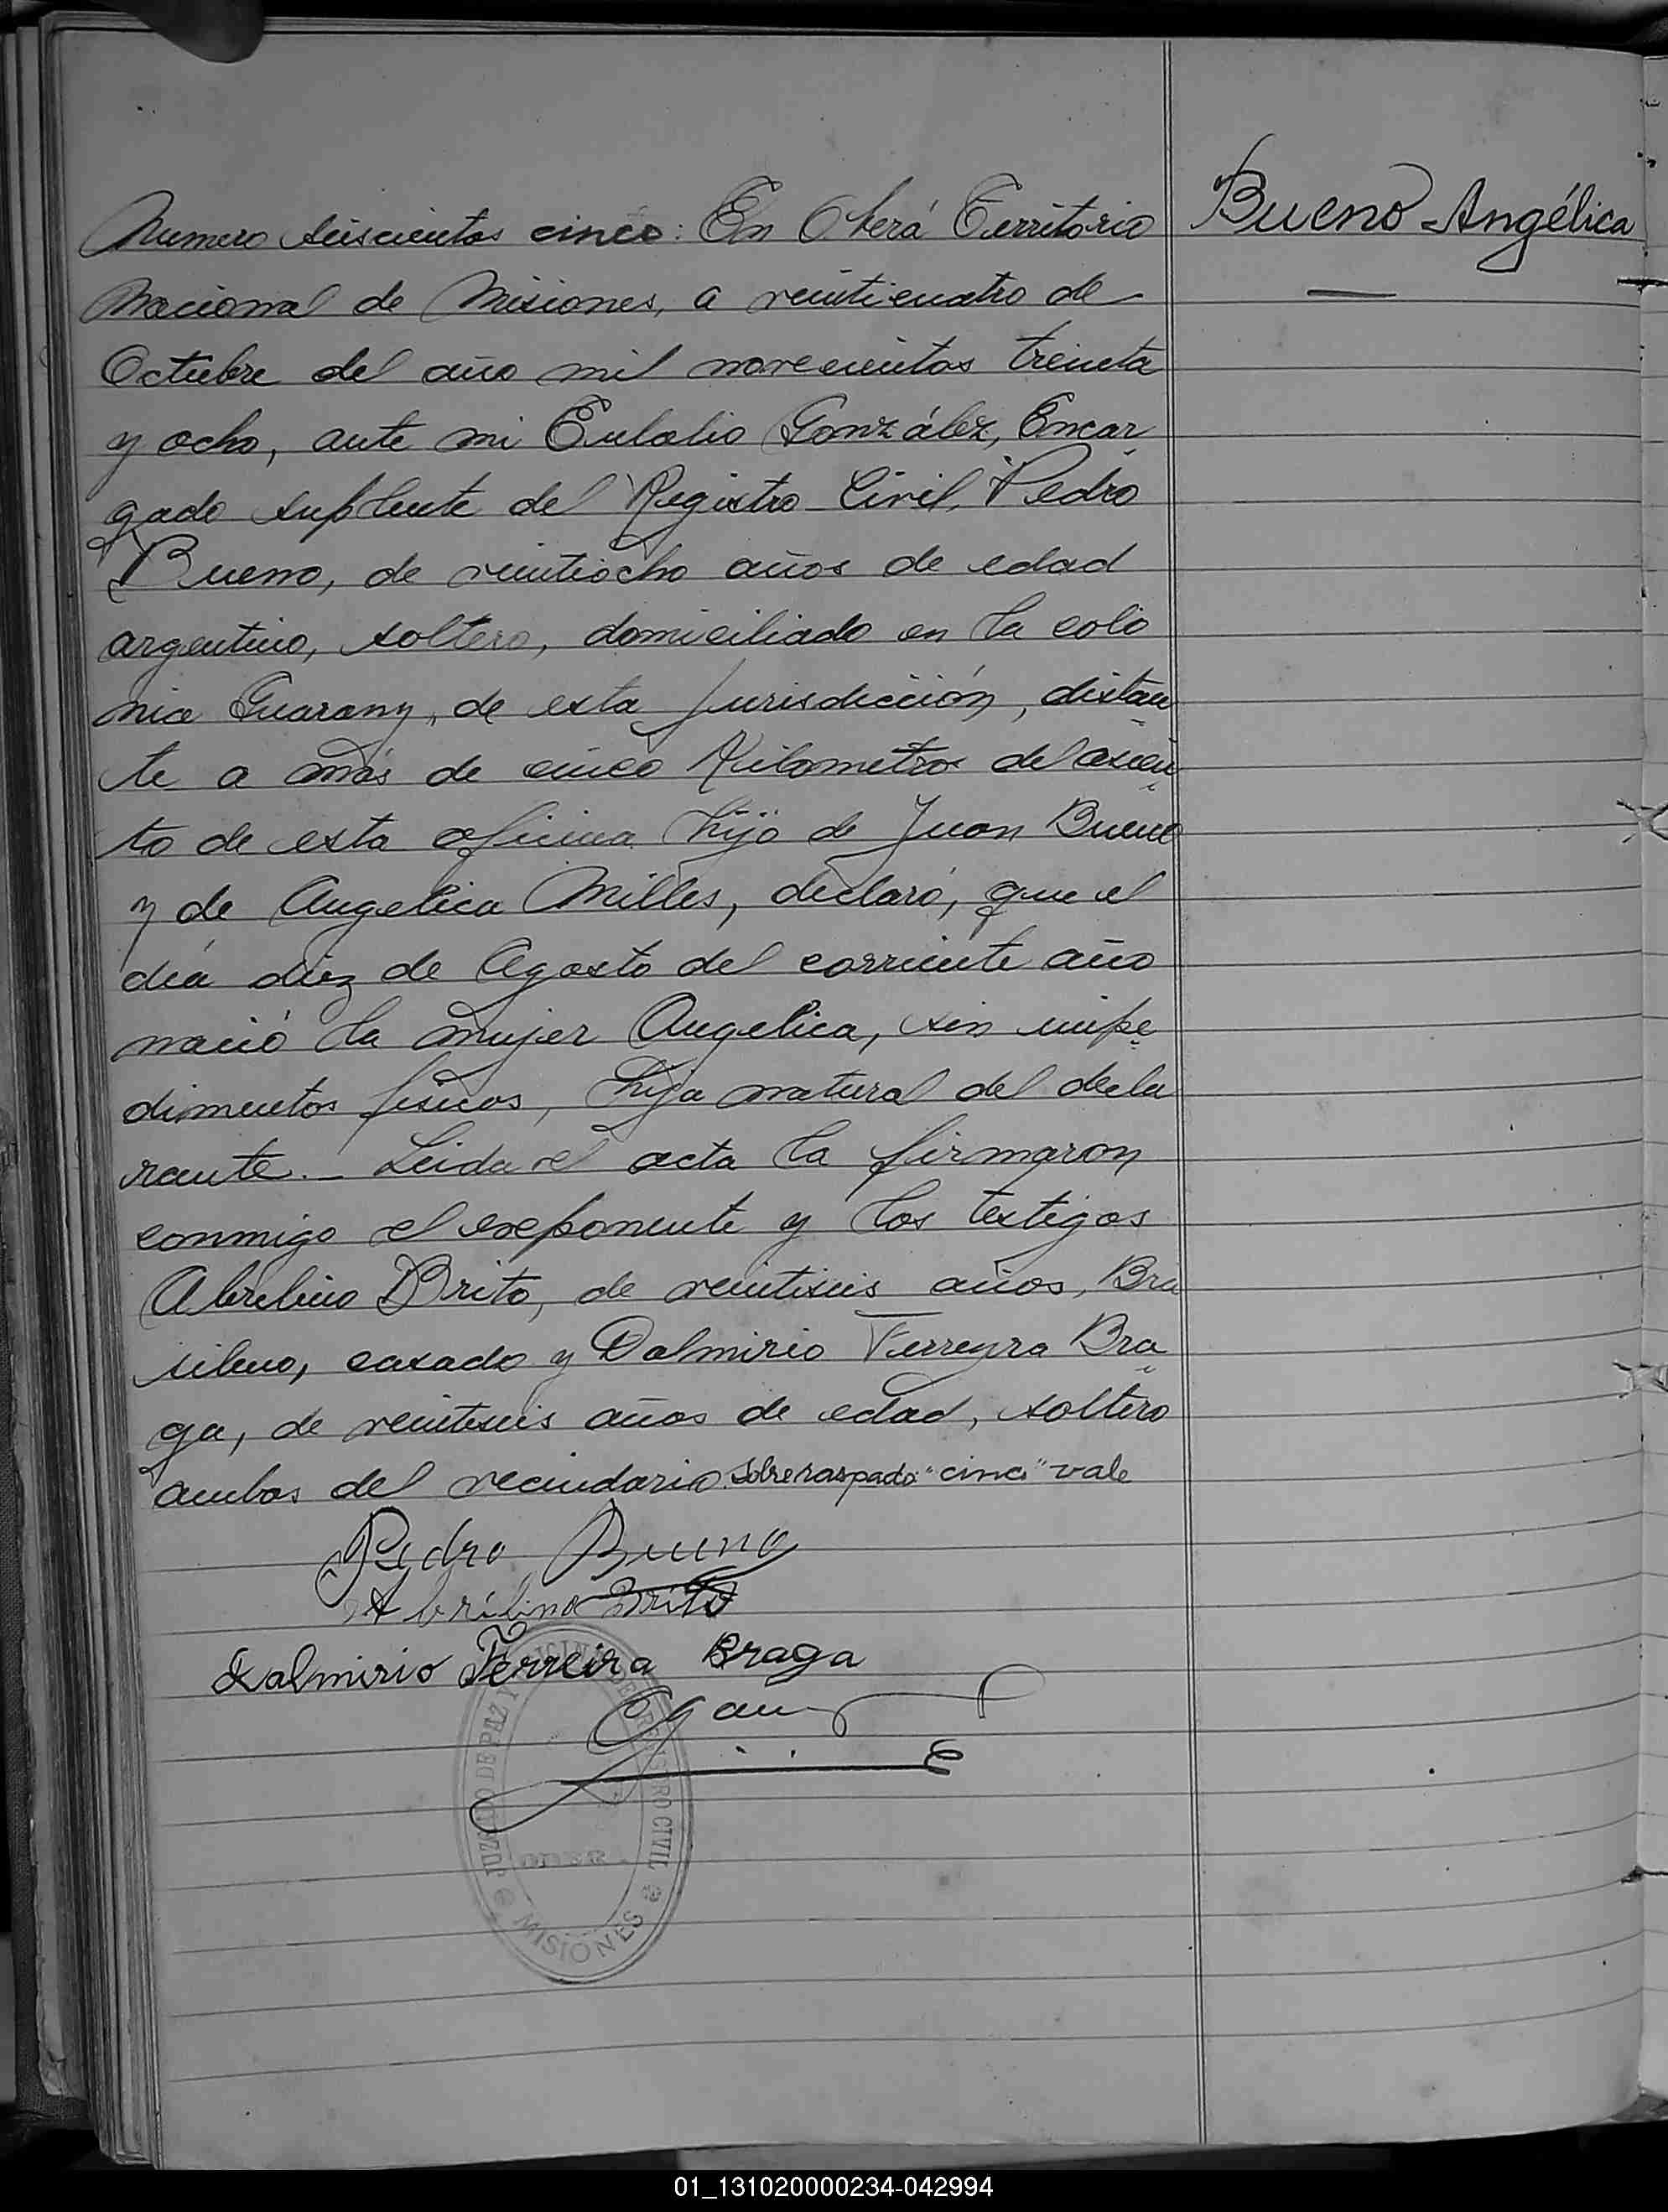 Numero seiscientos cinco: En Oberá Territorio
Nacional de Misiones, a veinticuatro de
Octubre del año mil novecientos treinta
y ocho, ante mi Eulalio González, Encar
gado suplente del Registro Civil, Pedro
Bueno, de veintiocho años de edad
argentino, soltero, domiciliado en la colo
nia Guarany, de esta jurisdicción, distan
te a más de cinco Kilometros del asien
to de esta oficina hijo de Juan Bueno
y de Angelica Milles, declaró, que el
día diez de Agosto del corriente año
nació la mujer Angelica, sin impe
dimentos fisicos, hija natural del decla
rante.- Leida el acta la firmaron
conmigo el exponente y los testigos
Abrelino Brito, de veintiseis años, Bra
sileno, casado y Dalmirio Ferreyra Bra
ga, de veintiseis años de edad, soltero
ambos del vecindario. Sobreraspado "cinco" vale
Bueno Angélica
Pedro Bueno
Abrilino Brito
Dalmirio Ferreira Braga
JUZGADO DE PAZ Y
REGISTRO CIVIL
MISIONES
01_131020000234-042994